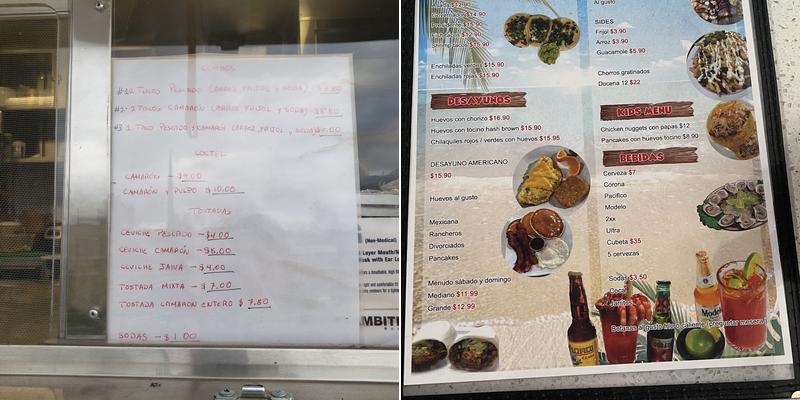 COMBOS
TACOS PESCADO (ARROZ, FRIJOL Y SODA)
#2- 2 TACOS CAMARÓN (ARROZ FRIJOL Y SODA)
#3 1 TACO PESCADO Y CAMARÓN (ARROZ, FRIJOL,
COCTEL
CAMARÓN - $9.00
CAMARÓN Y PULPO $10.00
TOSTADAS
CEVICHE PESCADO - $4.00
CEVICHE CAMARÓN - $5.00
CEVICHE JAIVA - $4.00
TOSTADA MIXTA - $7.00
TOSTADA CAMARON ENTERO $7.50
SODAS - $1.00
(Non-Medical)
Layer Mouth/
sk with Ear L
AMBITI
$15.90
Enchiladas verdes $15.90
Enchiladas rojas $15.90
DESAYUNOS
Huevos con chorizo $16.90
Huevos con tocino hash brown $15.90
Chilaquiles rojos / verdes con huevos $15.95
DESAYUNO AMERICANO
$15.90
Huevos al gusto
Mexicana
Rancheros
Divorciados
Pancakes
Menudo sábado y domingo
Mediano $11.99
Grande $12.99
Al gusto
SIDES
Frijol $3.90
Arroz $3.90
Guacamole $5.90
Chorros gratinados
Docena 12 $22
KIDS MENU
Chicken nuggets con papas $12
Pancakes con huevos tocino $8.90
BEBIDAS
Cerveza $7
Corona
Pacifico
Modelo
2xx
Ultra
Cubeta $35
5 cervezas
Sodas $3.50
Coca
Jarritos
Botanas al gusto frío o caliente (preguntar mesera)
PACIFICO
Modelo